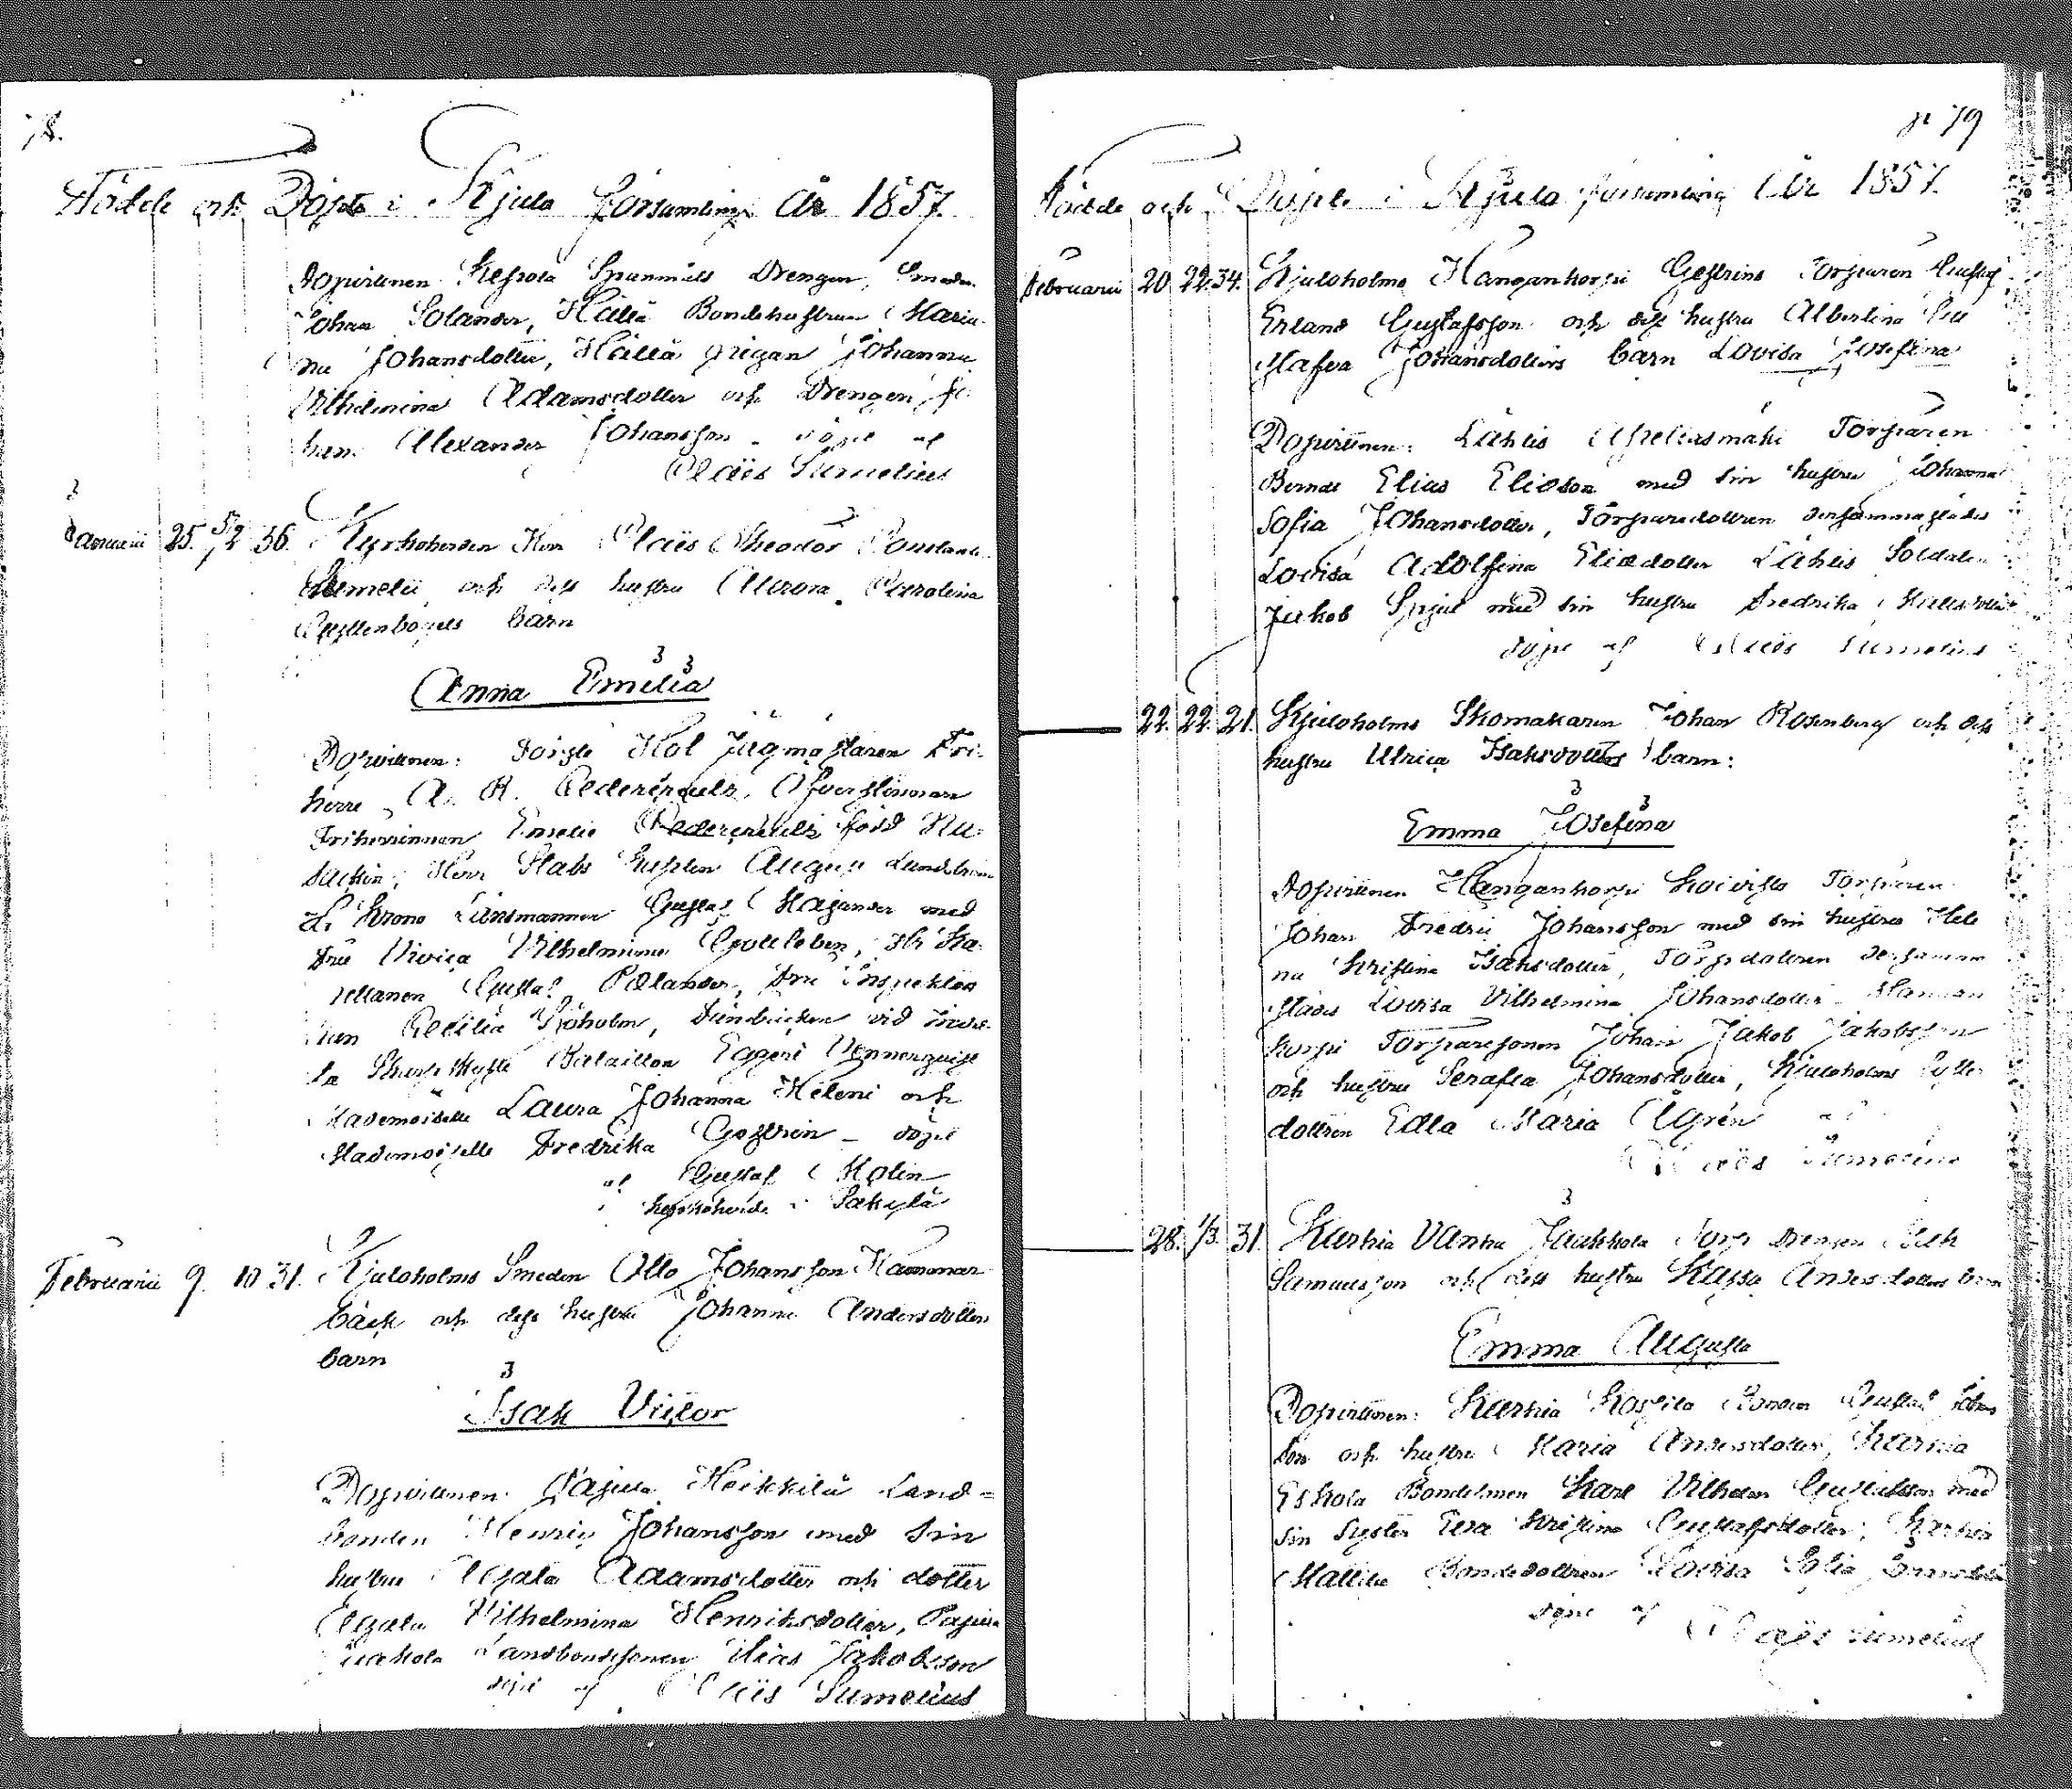 78.
Födde och Döpte i Kjula församling År 1857.
Dopvittnen Kepola Spannmåls Drengen, Smeden
Johan Solander, Hällä Bondehustrun Maria
na Johansdotter, Hällä pigan Johanna
Vilhelmina Adamsdotter och Drengen Jo
han Alexander Johansson - döpt af
Claës Sumelius
Januarii 25. 5/2 36. Kyrkoherden Herr Claës Theodor Constantin
Sumelii och dess hustru Aurora Carolina
Gyllenbögels barn
Anna Emilia
Dopvittnen: Hof Jägmästaren Fri-
herre A. R. Cedercreutz, Öfverstinnan
Friherrinnan Emelie Cedercreutz född
Herr Stabs August Lund
Krono Länsmannen Gustaf Majander med
Fru Vivica Vilhelmina Gottleben, Hr Ka-
pellanen Gustaf Polander, Fru Inspektor
Cecilia Sjöholm, vid
la Skarpskytte Bataillon Wennerqvist
Mademoiselle Laura Johanna Heleni och
Mademoiselle Fredrika Gostrin - döpt
af Gustaf Molin
kyrkoherde i Säkylä
Februarii 9. 10 31. Kjuloholms Smeden Otto Johansson Hammar
bäck och dess hustru Johanna Andersdotters
barn
Isak Victor
Dopvittnen. Pajula Heikkilä Land-
bonden Henric Johansson med sin
hustru Agata Adamsdotter och dotter
Agata Vilhelmina Henriksdotter, Pajula
Landbondesonen Elias Jakobsson
döpt af Claës Sumelius
p 79
Födde och Döpte i Kjulo församling År 1857.
Februarii 20 22. 34. Kjuloholms Hangankorpi Gestrins Torparen Gustaf
Erland Gustafsson och dess hustru Albertina Gu
stafva Johansdotters barn Lovisa Josefina
Dopvittnen: Lähtis Torparen
Elias Eliasson med sin hustru Johanna
Sofia Johansdotter, Torparedottren dersammastädes
Lovisa Adolfina Eliedotter Lähtis Soldaten
Jakob Spjut med sin hustru Fredrika
döpt af Claës Sumelius
22. 22. 21. Kjuloholms Skomakaren Johan Rosenberg och dess
hustru Ulrica Isaksdotters barn:
Emma Josefina
Dopvittnen Hangankorpi Koivisto Torparen
Johan Fredric Johansson med sin hustru Hele
na Kristina Isaksdotter, Torpdottren dersamma
städes Lovisa Vilhelmina Johansdotter Hangan
korpi Torparesonen Johan Jakob Jakobsson
och hustru Serafia Johansdotter, Kjuloholms
dottren Edla Maria Ågrén
Claës Sumelius
28. 1/3. 31. Karhia Vanha Jaakkola Torp Drengen Isak
Samuelsson och dess hustru Kajsa Andersdotters barn
Emma Augusta
Dopvittnen: Karhia Bonden Gustaf Johans
son och hustru Maria Andersdotter, Karhia
Eskola Bondesonen Karl Vilhelm Gustafsson med
sin Syster Eva Kristina Gustafsdotter, Karhia
Mattila Bondedottren Lovisa Sofia
döpt af Claës Sumelius